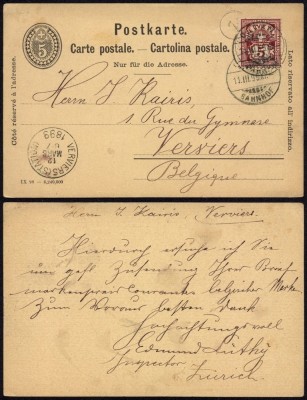 Postkarte.
Carte postale. – Cartolina postale.
Nur für die Adresse.
Côté réservé à l'adresse.
Lato riservato all'indirizzo.
5
Herrn J. Kairis,
1. Rue du Gymnase
Verviers
Belgique
VERVIERS (STATION)
12
MARS
1899
BAHNHOF
Herrn J. Kairis, Verviers.
Hierdurch ersuche ich Sie
um gefl. Zusendung Ihres Brief
markenpreiscourantes belgischer Marken
Zum Voraus besten Dank
Hochachtungsvoll
Edmund Lüthy
Inspector
Zürich